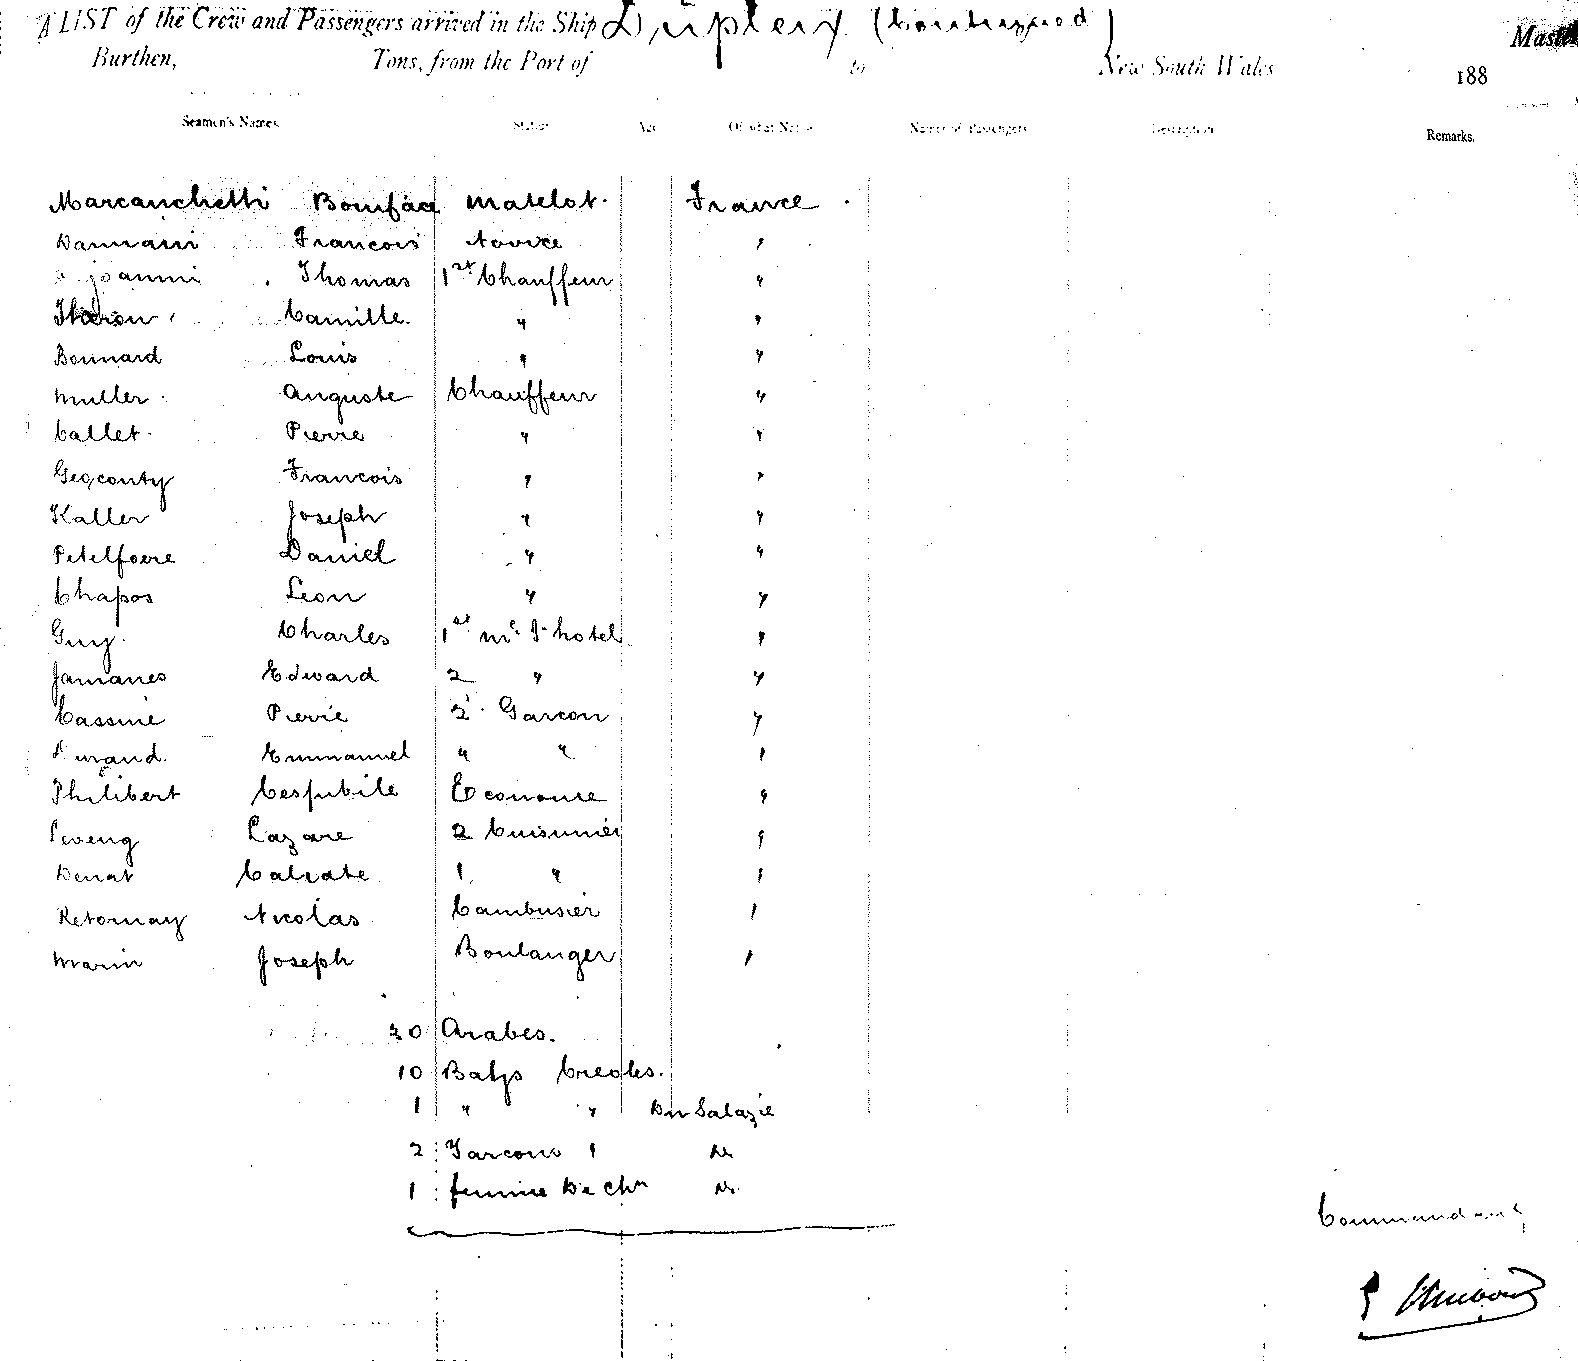 A LIST of the Crew and Passengers arrived in the Ship Dupleix (Continued)
Master
Burthen, Tons, from the Port of to New South Wales 188
Seamen's Names. Station Age Of what Nation Names of Passengers Description Remarks.
Marcanchetti Boniface Matelot. France.
Damiani Francois Novice "
joanni Thomas 1st Chauffeur "
Camille. " "
Bonnard Louis " "
Muller Auguste Chauffeur "
Callet Pierre " "
Geqconty Francois " "
Kaller Joseph " "
Petelfoere Daniel " "
Chapos Leon " "
Guy. Charles 1st me d'hotel "
Jamanes Edward 2 " "
Cassine Pierre 2 Garcon "
Durand. Emmanuel " " "
Philibert Econome "
Lazare 2 Cuisinier "
Benat 1 " "
Retornay Nicolas Cambusier "
Marin Joseph Boulanger "
Arabes.
10 Creoles.
1 " " Du Salazie
2 Garcons " "
1 femme De Chre
Commandant